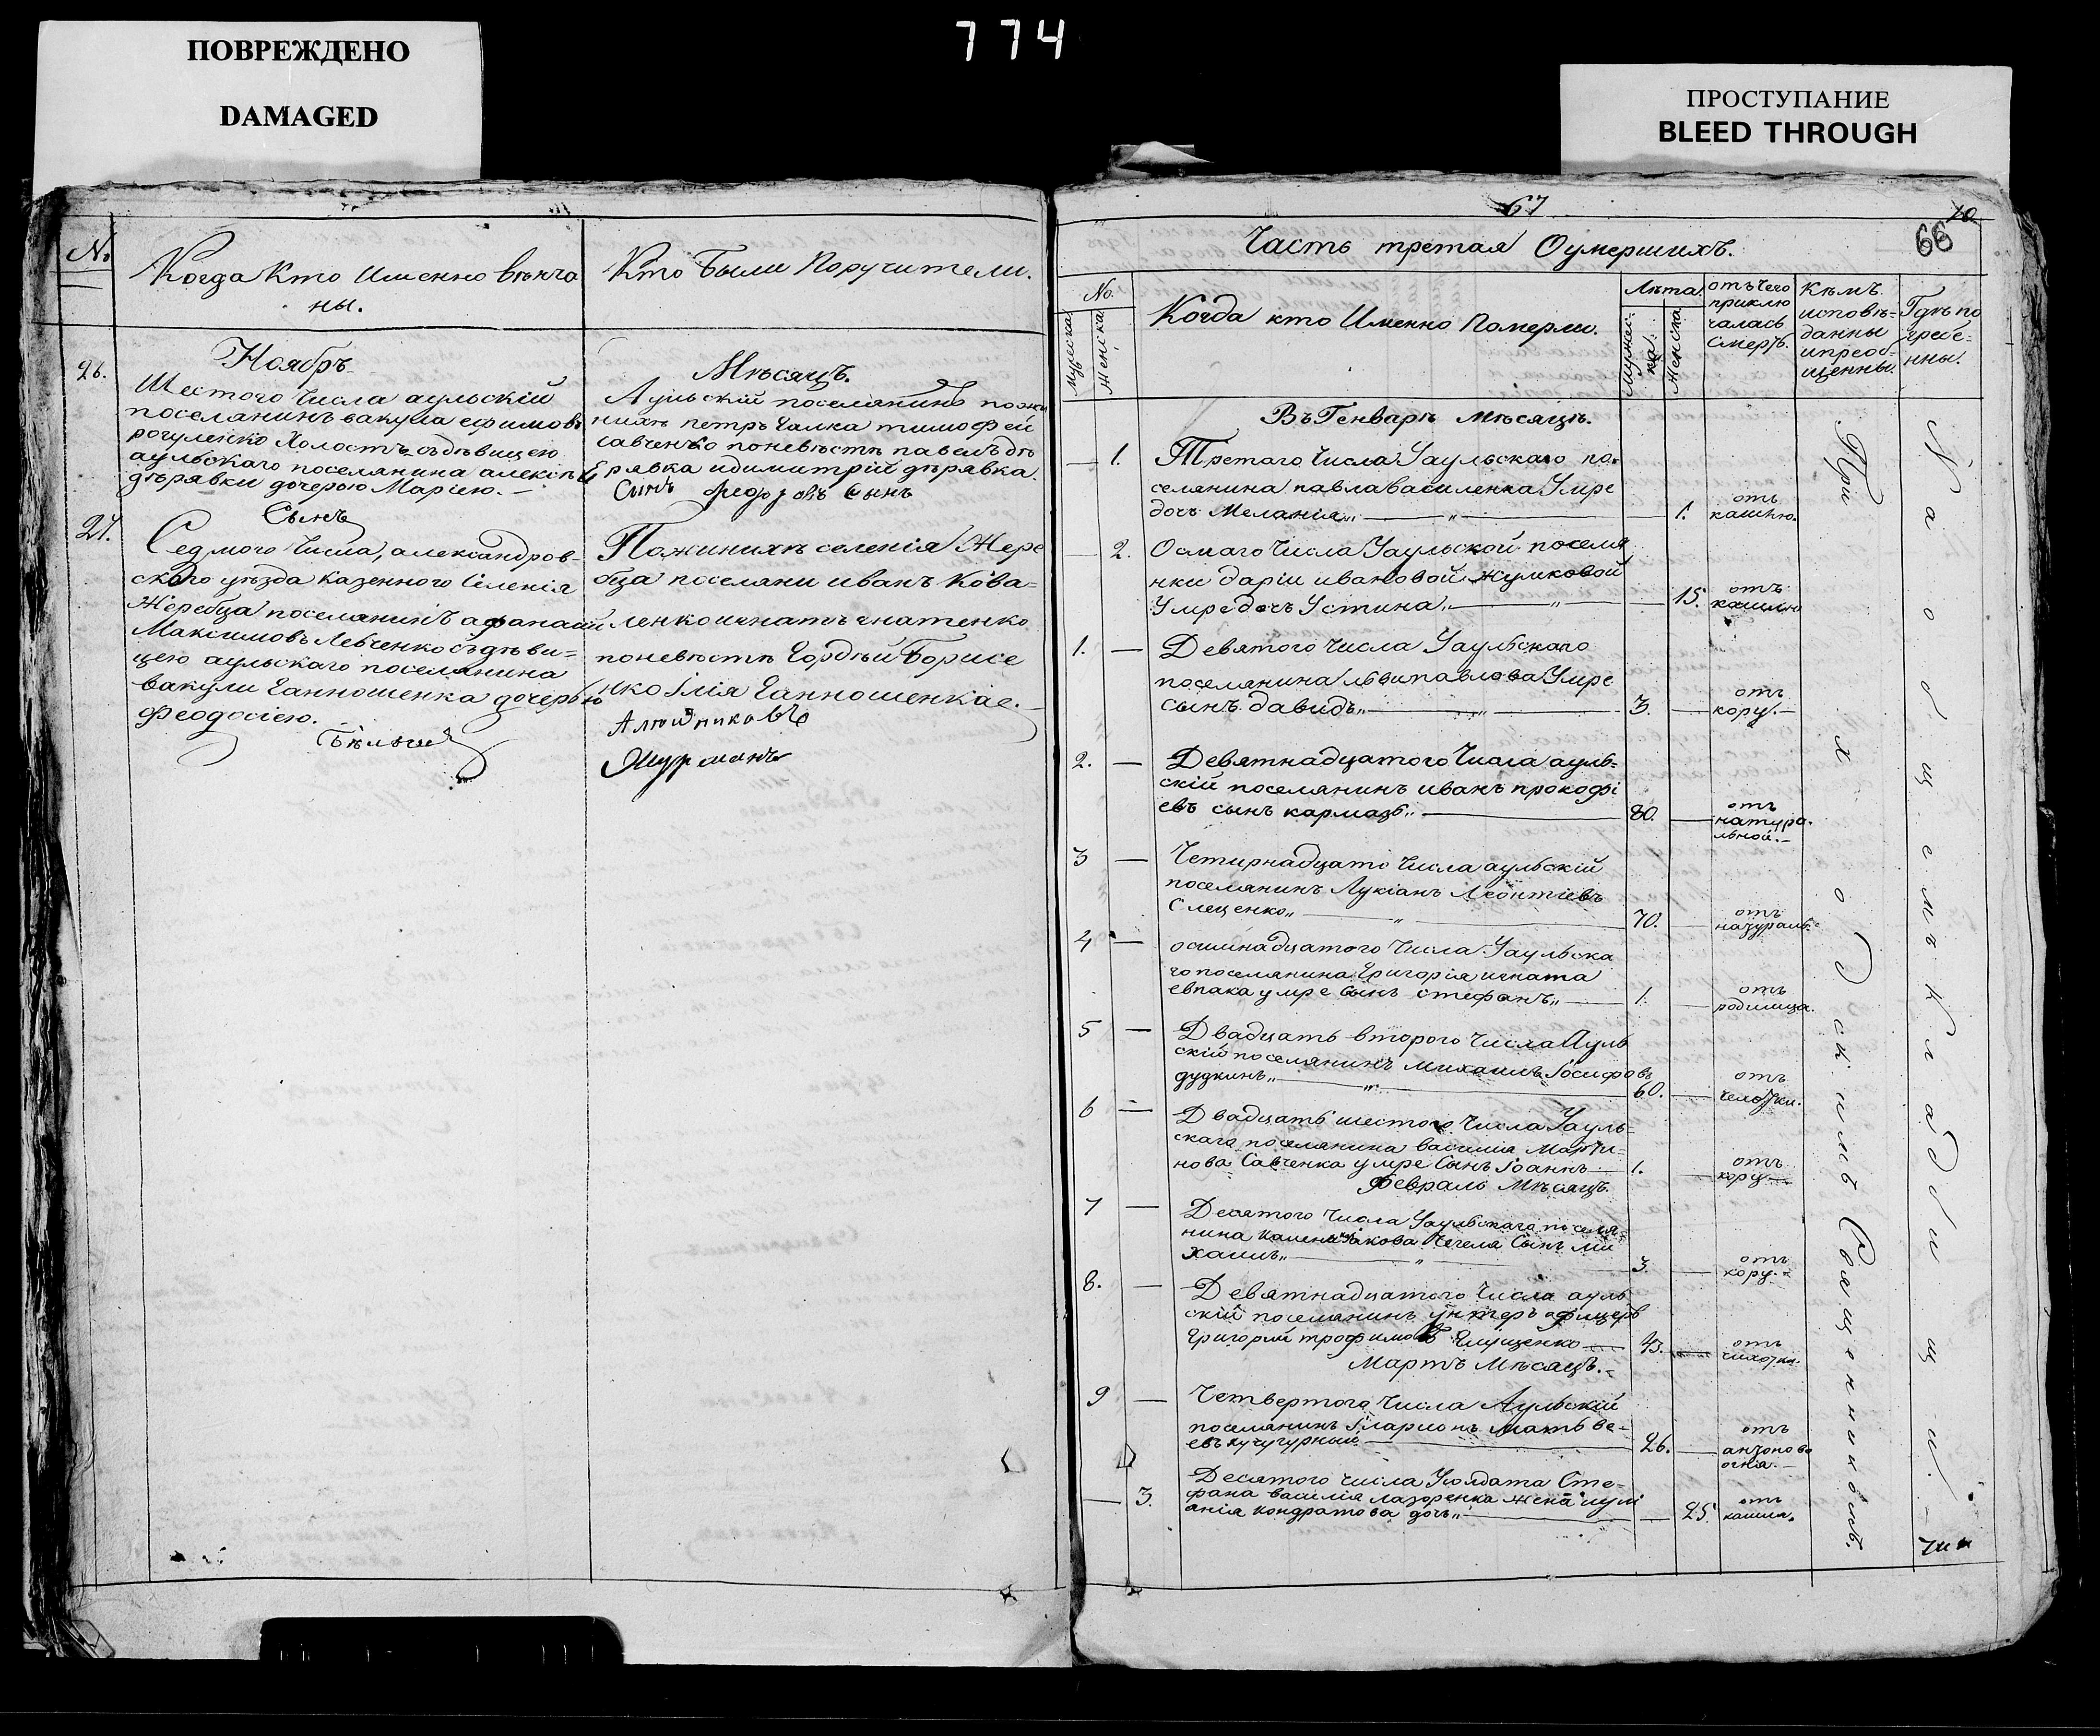 774
ПОВРЕЖДЕНО
DAMAGED
ПРОСТУПАНИЕ
BLEED THROUGH
№
Когда Кто Именно венча
ны.
Кто Были Поручители.
Ноябрь
Месяцъ.
26.
Шестого Числа аульскій
поселянинъ вакула ефимовъ
рогуленко Холостъ съдевицею
аульскаго поселянина алексея
дерявки дочерою Маріею.
Аульскій поселянинъ по же
нихе петръ Галка тимофей
савченко поневесте павелъ де
рявка идимитрій дерявка.
Сынъ
27.
Седмого Числа, александров-
ского уезда казенного Селенія
Жеребца поселянинъ афанасій
Максимовъ Левченко съдеви=
цею аульскаго поселянина
вакули Ганношенка дочерью
феодосіею.
Пожинихе селенія Жере
бца поселяни иванъ Кова-
ленко игнатъ гнатенко
поневесте Гордей Борисе
нко Ілія Ганношенка
67
66
Часть третая Оумершихъ.
№.
Мужеска
Женска
Когда кто Именно Померли.
Лета.
Мужес-
ка.
Женска
отъ Чего
приклю
чалась
смерть.
Кемъ
исповѣ=
данны
ипреоб-
щенны.
Где по
гребе-
нны.
Въ Генваре месяце.
1.
Третаго Числа Уаульскаго по-
селянина павла василенка Умре
дочъ Меланія
1.
отъ
кашлю.
2.
Осмаго Числа Уаульской поселя
нки даріи ивановой жумковой
Умре дочъ Устина
15.
отъ
кашлю
1.
Девятого Числа Уаульскаго
поселянина львипавлова Умре
сынъ давидъ
3.
отъ
кору.
2.
Девятнадцатого Числа ауль-
скій поселянинъ иванъ прокофі
евъ сынъ кармазъ
80.
отъ
натура-
льной.
3
Четирнадцато Числа аульскій
поселянинъ Лукіанъ Леонтіевъ
Слеценко
70.
отъ
натураль
4
осимнадцатого Числа Уаульска
го поселянина Григорія игната
евпака умре сынъ стефанъ
1.
отъ
родимца.
5
Двадцать второго Числа Ауль
скій поселянинъ михаилъ Іосифовъ
дудкинъ
60.
отъ
чехотки.
6
Двадцать шестого Числа Уауль-
скаго поселянина василія Марти-
нова Савченка умре Сынъ Іоаннъ
1.
отъ
кору
Февраль Месяцъ.
7
Десятого Числа Уаульскаго поселя-
нина Чегеля Сынъ Ми
хаилъ
3.
отъ
кору.
8.
Девятнадцатого Числа ауль
скій поселянинъ унтеръ офицеръ
Григорій трофимовъ
43.
отъ
чихотки
Мартъ Месяцъ.
9
Четвертого Числа Аульскій
поселянинъ Іларионъ матве-
евъ кучугурный
26.
отъ
антонова
огня.
3.
Десятого Числа Усолдата Сте-
фана василія лазоренка жена
кондратова дочъ
25.
отъ
кашля.
Приходскимъ Священникомъ.
Наобщемъ Кладбищи.